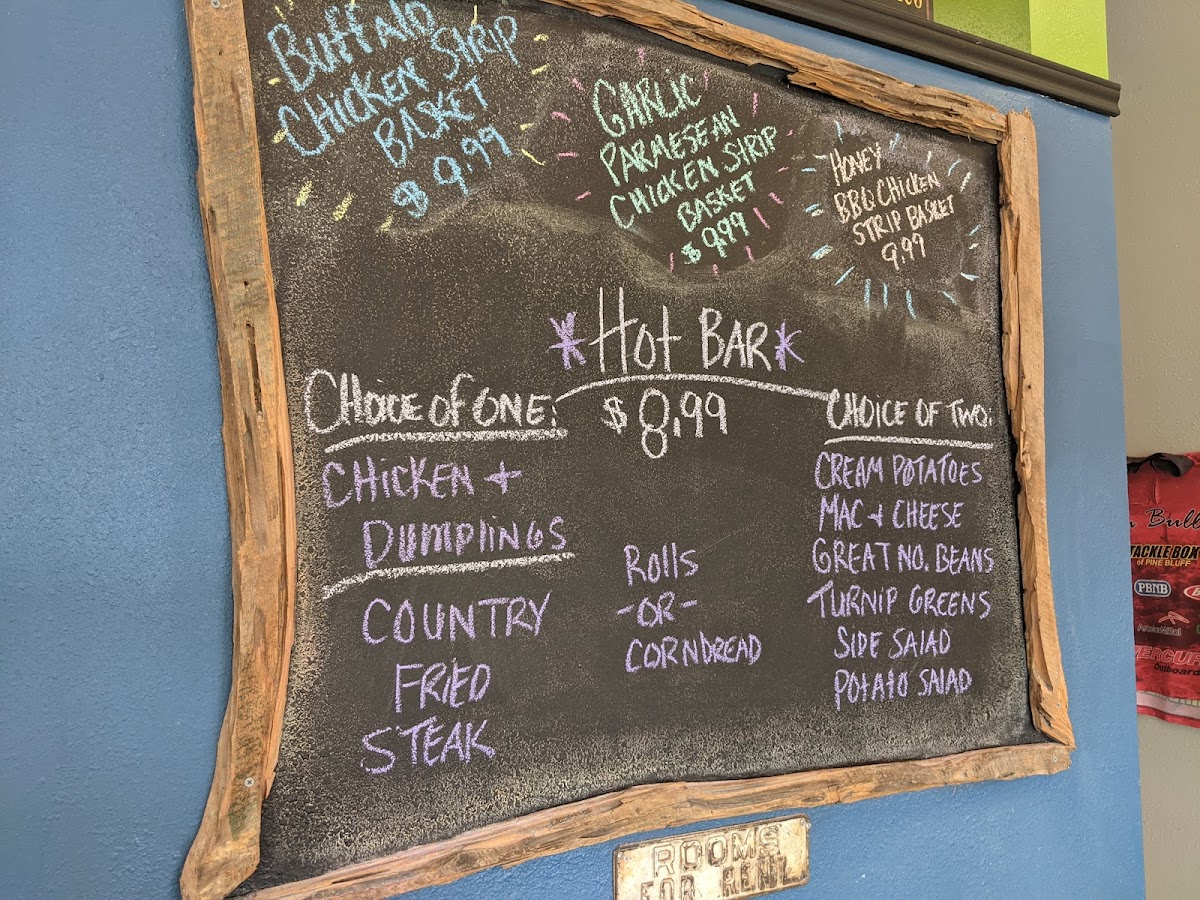 Buffalo
Chicken Strip
Basket
$ 9.99
Garlic
Parmesean
Chicken Strip
Basket
$ 9.99
Honey
BBQ Chicken
Strip Basket
9.99
*Hot Bar*
$ 8.99
Choice of One:
Chicken +
Dumplings
Country
Fried
Steak
Rolls
-OR-
Cornbread
Choice of Two:
Cream Potatoes
Mac + Cheese
Great No. Beans
Turnip Greens
Side Salad
Potato Salad
ROOMS
FOR RENT
Bull
TACKLE BOX
of PINE BLUFF
PBNB